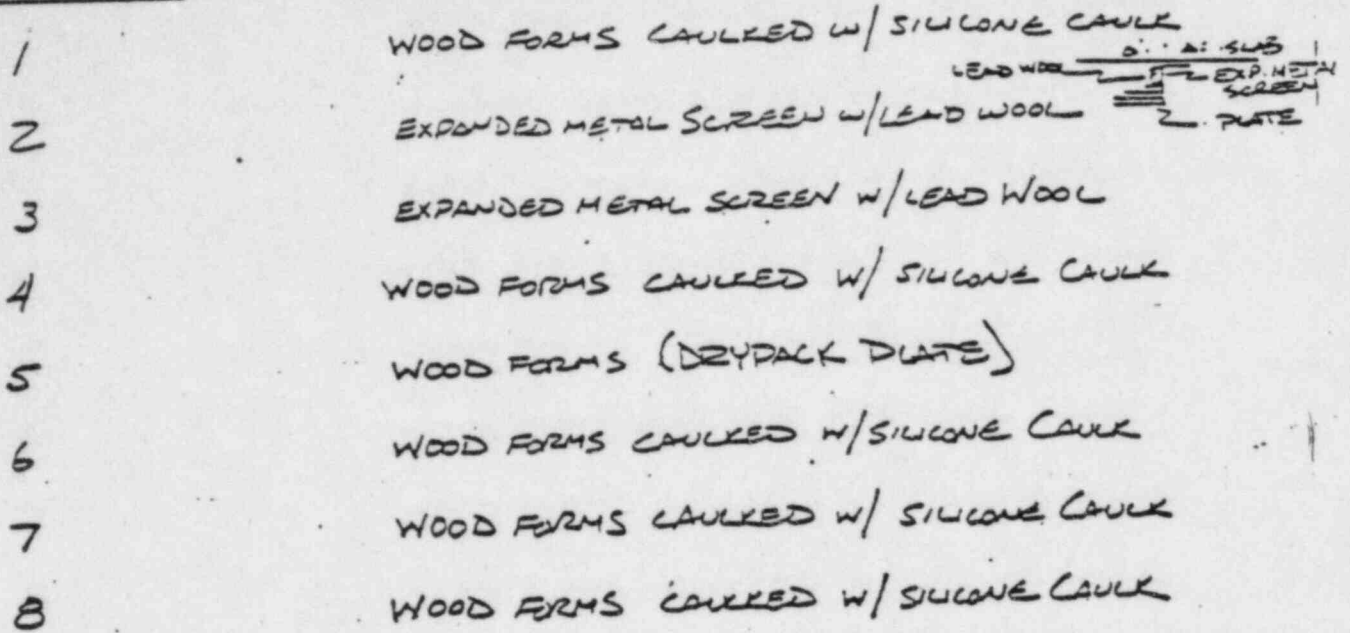 1 WOOD FORMS CAULKED W/ SILICONE CAULK
SLAB
LEAD WOOL EXP. METAL
SCREEN
PLATE
2 EXPANDED METAL SCREEN W/LEAD WOOL
3 EXPANDED METAL SCREEN W/LEAD WOOL
4 WOOD FORMS CAULKED W/ SILICONE CAULK
5 WOOD FORMS (DRYPACK PLATE)
6 WOOD FORMS CAULKED W/SILICONE CAULK
7 WOOD FORMS CAULKED W/ SILICONE CAULK
8 WOOD FORMS CAULKED W/ SILICONE CAULK